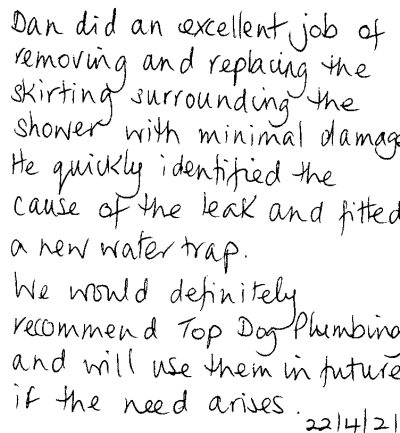 Dan did an excellent job of
removing and replacing the
skirting surrounding the
shower with minimal damage
He quickly identified the
cause of the leak and fitted
a new water trap.
We would definitely
recommend Top Dog Plumbing
and will use them in future
if the need arises.
22/4/21